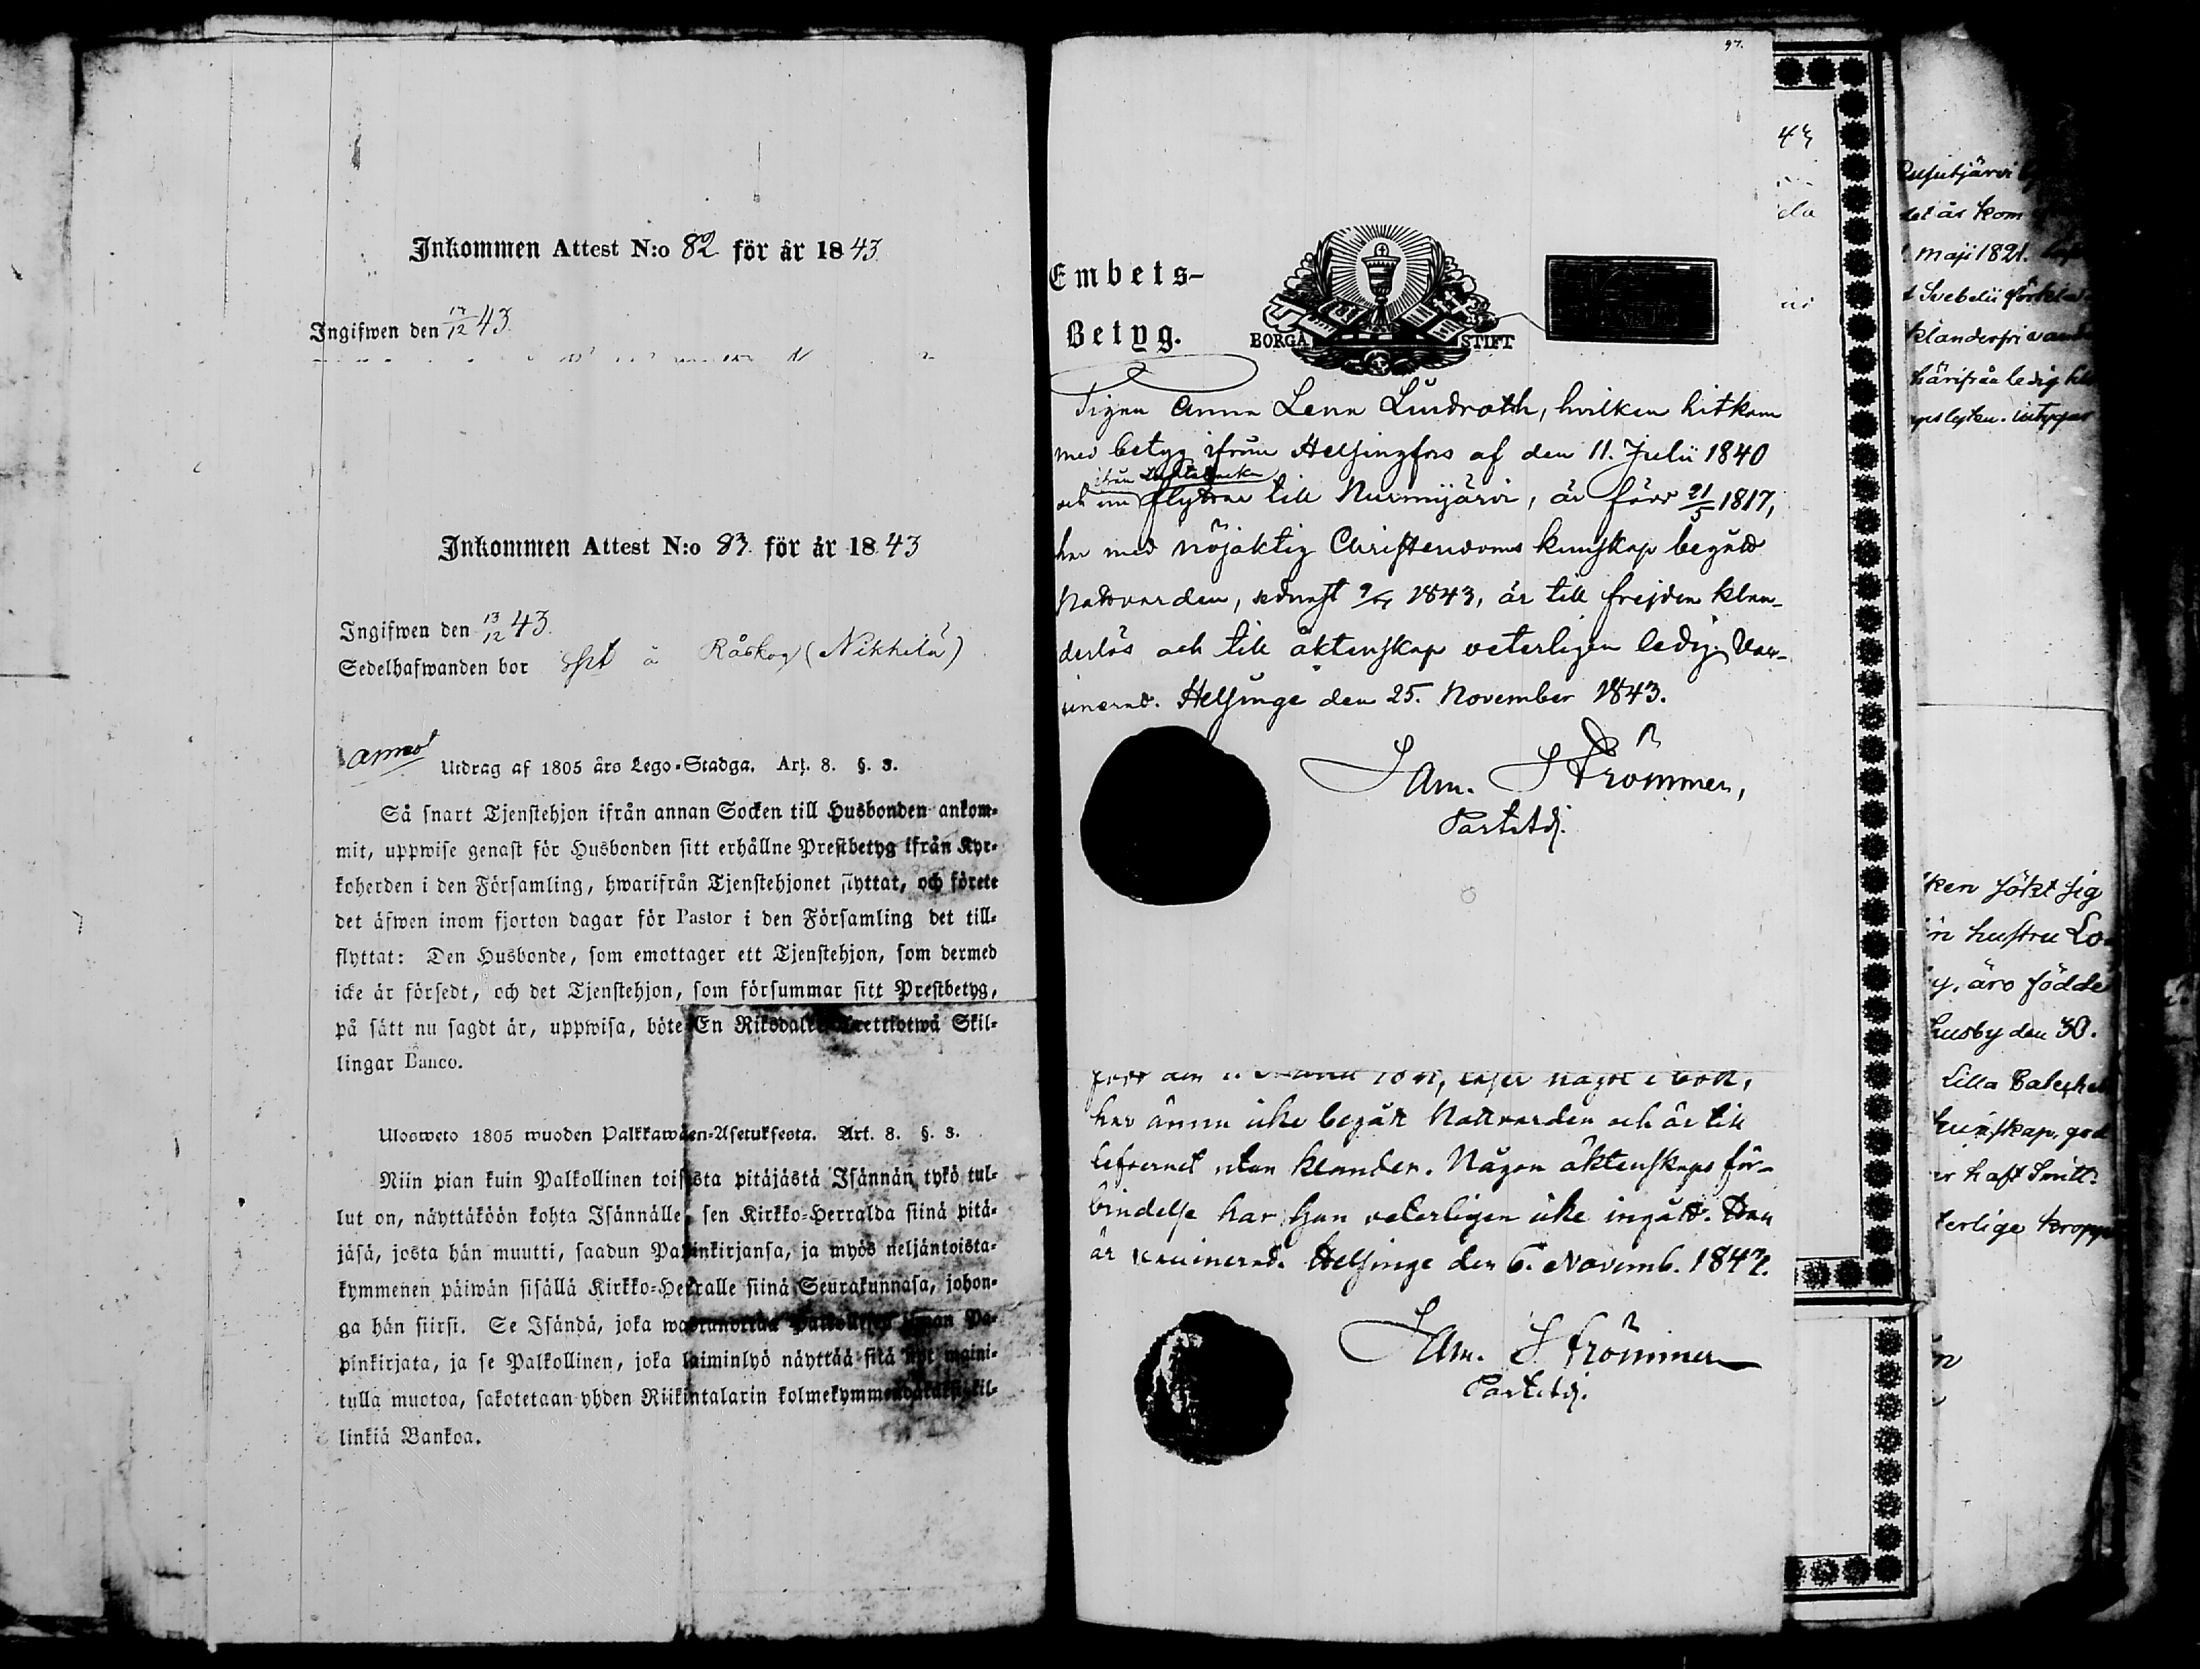 Inkommen Attest N:o 82 för år 1843
Ingifwen den 17/12 43.
Inkommen Attest N:o 83 för år 1843
Ingifwen den 13/12 43.
Sedelhafwanden bor å Råskog (Nikkilä)
Utdrag af 1805 års Lego-Stadga. Art. 8. §. 3.
Så snart Tjenstehjon ifrån annan Socken till Husbonden ankom-
mit, uppwise genast för Husbonden sitt erhållne Prestbetyg ifrån Kyr-
koherden i den Församling, hwarifrån Tjenstehjonet flyttat, och förete
det äfwen inom fjorton dagar för Pastor i den Församling det till-
flyttat: Den Husbonde, som emottager ett Tjenstehjon, som dermed
icke är försedt, och det Tjenstehjon, som försummar sitt Prestbetyg,
på sätt nu sagdt är, uppwisa, böte En Riksdaler trettiotwå Skil-
lingar Banco.
Ulosweto 1805 wuoden Palkkawäen-Asetuksesta. Art. 8. §. 3.
Niin pian kuin Palkollinen toisesta pitäjästä Isännän tykö tul-
lut on, näyttäköön kohta Isännälle, sen Kirkko-Herralda siinä pitä-
jäsä, josta hän muutti, saadun Papinkirjansa, ja myös neljäntoista-
kymmenen päiwän sisällä Kirkko-Herralle siinä Seurakunnasa, johon-
ga hän siirsi. Se Isändä, joka Palkollisen ilman Pa-
pinkirjata, ja se Palkollinen, joka laiminlyö näyttää sitä nyt mgini-
tulla muotoa, sakotetaan yhden Riikintalarin kolmekymmendäkaksikil-
linkiä Bankoa.
97.
Embets-
Betyg.
BORGÅ STIFT
Pigan Anna Lena Lindroth, hvilken hitkom
med betyg ifrån Helsingfors af den 11. Julii 1840
ifrån
och nu flyttar till Nurmijärvi, är född 21/5 1817,
har med nöjaktig Christendoms kunskap begått
Nattvarden, sednast 1843, är till frejden klan-
derlös och till äktenskap veterligen ledig. Vac-
cinerad. Helsinge den 25. November 1843.
Sam. Strömmer,
Past. Adj.
född den något i bok,
har ännu icke begått Nattvarden och är till
lefvernet utan klander. Någon äktenskaps för-
bindelse har Han veterligen icke ingått. Han
är vaccinerad. Helsinge den 6. Novemb. 1842.
Sam. Strömmer
Past. Adj.
43
maji 1821.
t Svebelii förkla
klanderfri vand
härifrån ledig
intygar
ken sökt sig
n hustru Lo
y, äro födde
husby den 30.
Lilla Cateches
kunskap, god
er haft Smitt-
terlige kropp